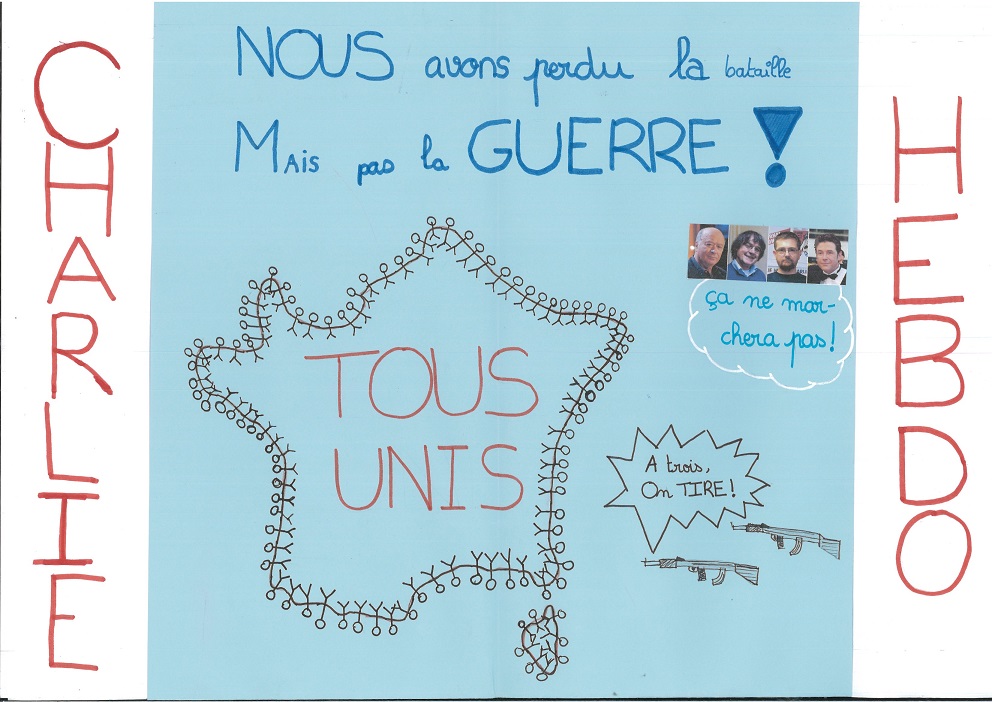 CHARLIE
NOUS avons perdu la bataille
MAis pas la GUERRE !
ça ne mar-
chera pas!
TOUS
UNIS
A trois,
On TIRE!
HEBDO